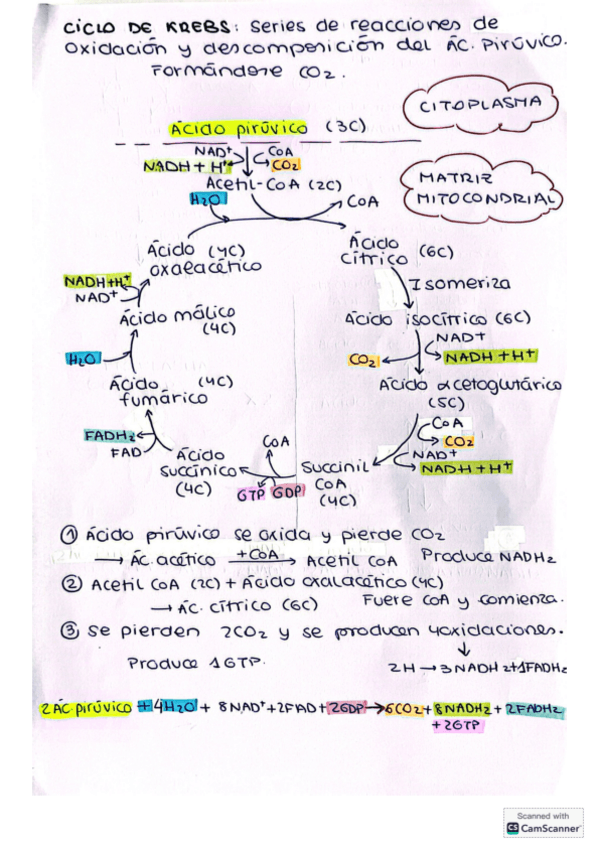 CICLO DE KREBS: Series de reacciones de
oxidación y descomposición del ÁC. pirúvico.
Formándose CO2.
CITOPLASMA
Ácido pirúvico (3C)
NAD+ CoA
NADH + H+ CO2
Acetil-CoA (2C)
H2O CoA
MATRIZ
MITOCONDRIAL
Ácido (4C)
oxalacético
Ácido
cítrico (6C)
NADH+H+
NAD+
Isomeriza
Ácido málico
(4C)
Ácido isocítrico (6C)
NAD+
CO2 NADH + H+
H2O
Ácido (4C)
fumárico
Ácido α cetoglutárico
(5C)
FADH2
FAD
CoA
CO2
NAD+
NADH + H+
CoA
Ácido
succínico
(4C)
Succinil
CoA
(4C)
GTP GDP
① Ácido pirúvico se oxida y pierde CO2
→ Ác. acético +CoA → Acetil CoA Produce NADH2
② Acetil CoA (2C) + Ácido oxalacético (4C)
→ ÁC. cítrico (6C) Fuere CoA y comienza.
③ Se pierden 2CO2 y se producen 4oxidaciones.
↓
Produce 1GTP. 2H → 3NADH2+1FADH2
2ÁC. pirúvico + 4H2O + 8NAD+ + 2FAD + 2GDP → 6CO2 + 8NADH2 + 2FADH2
+ 2GTP
Scanned with
CS CamScanner